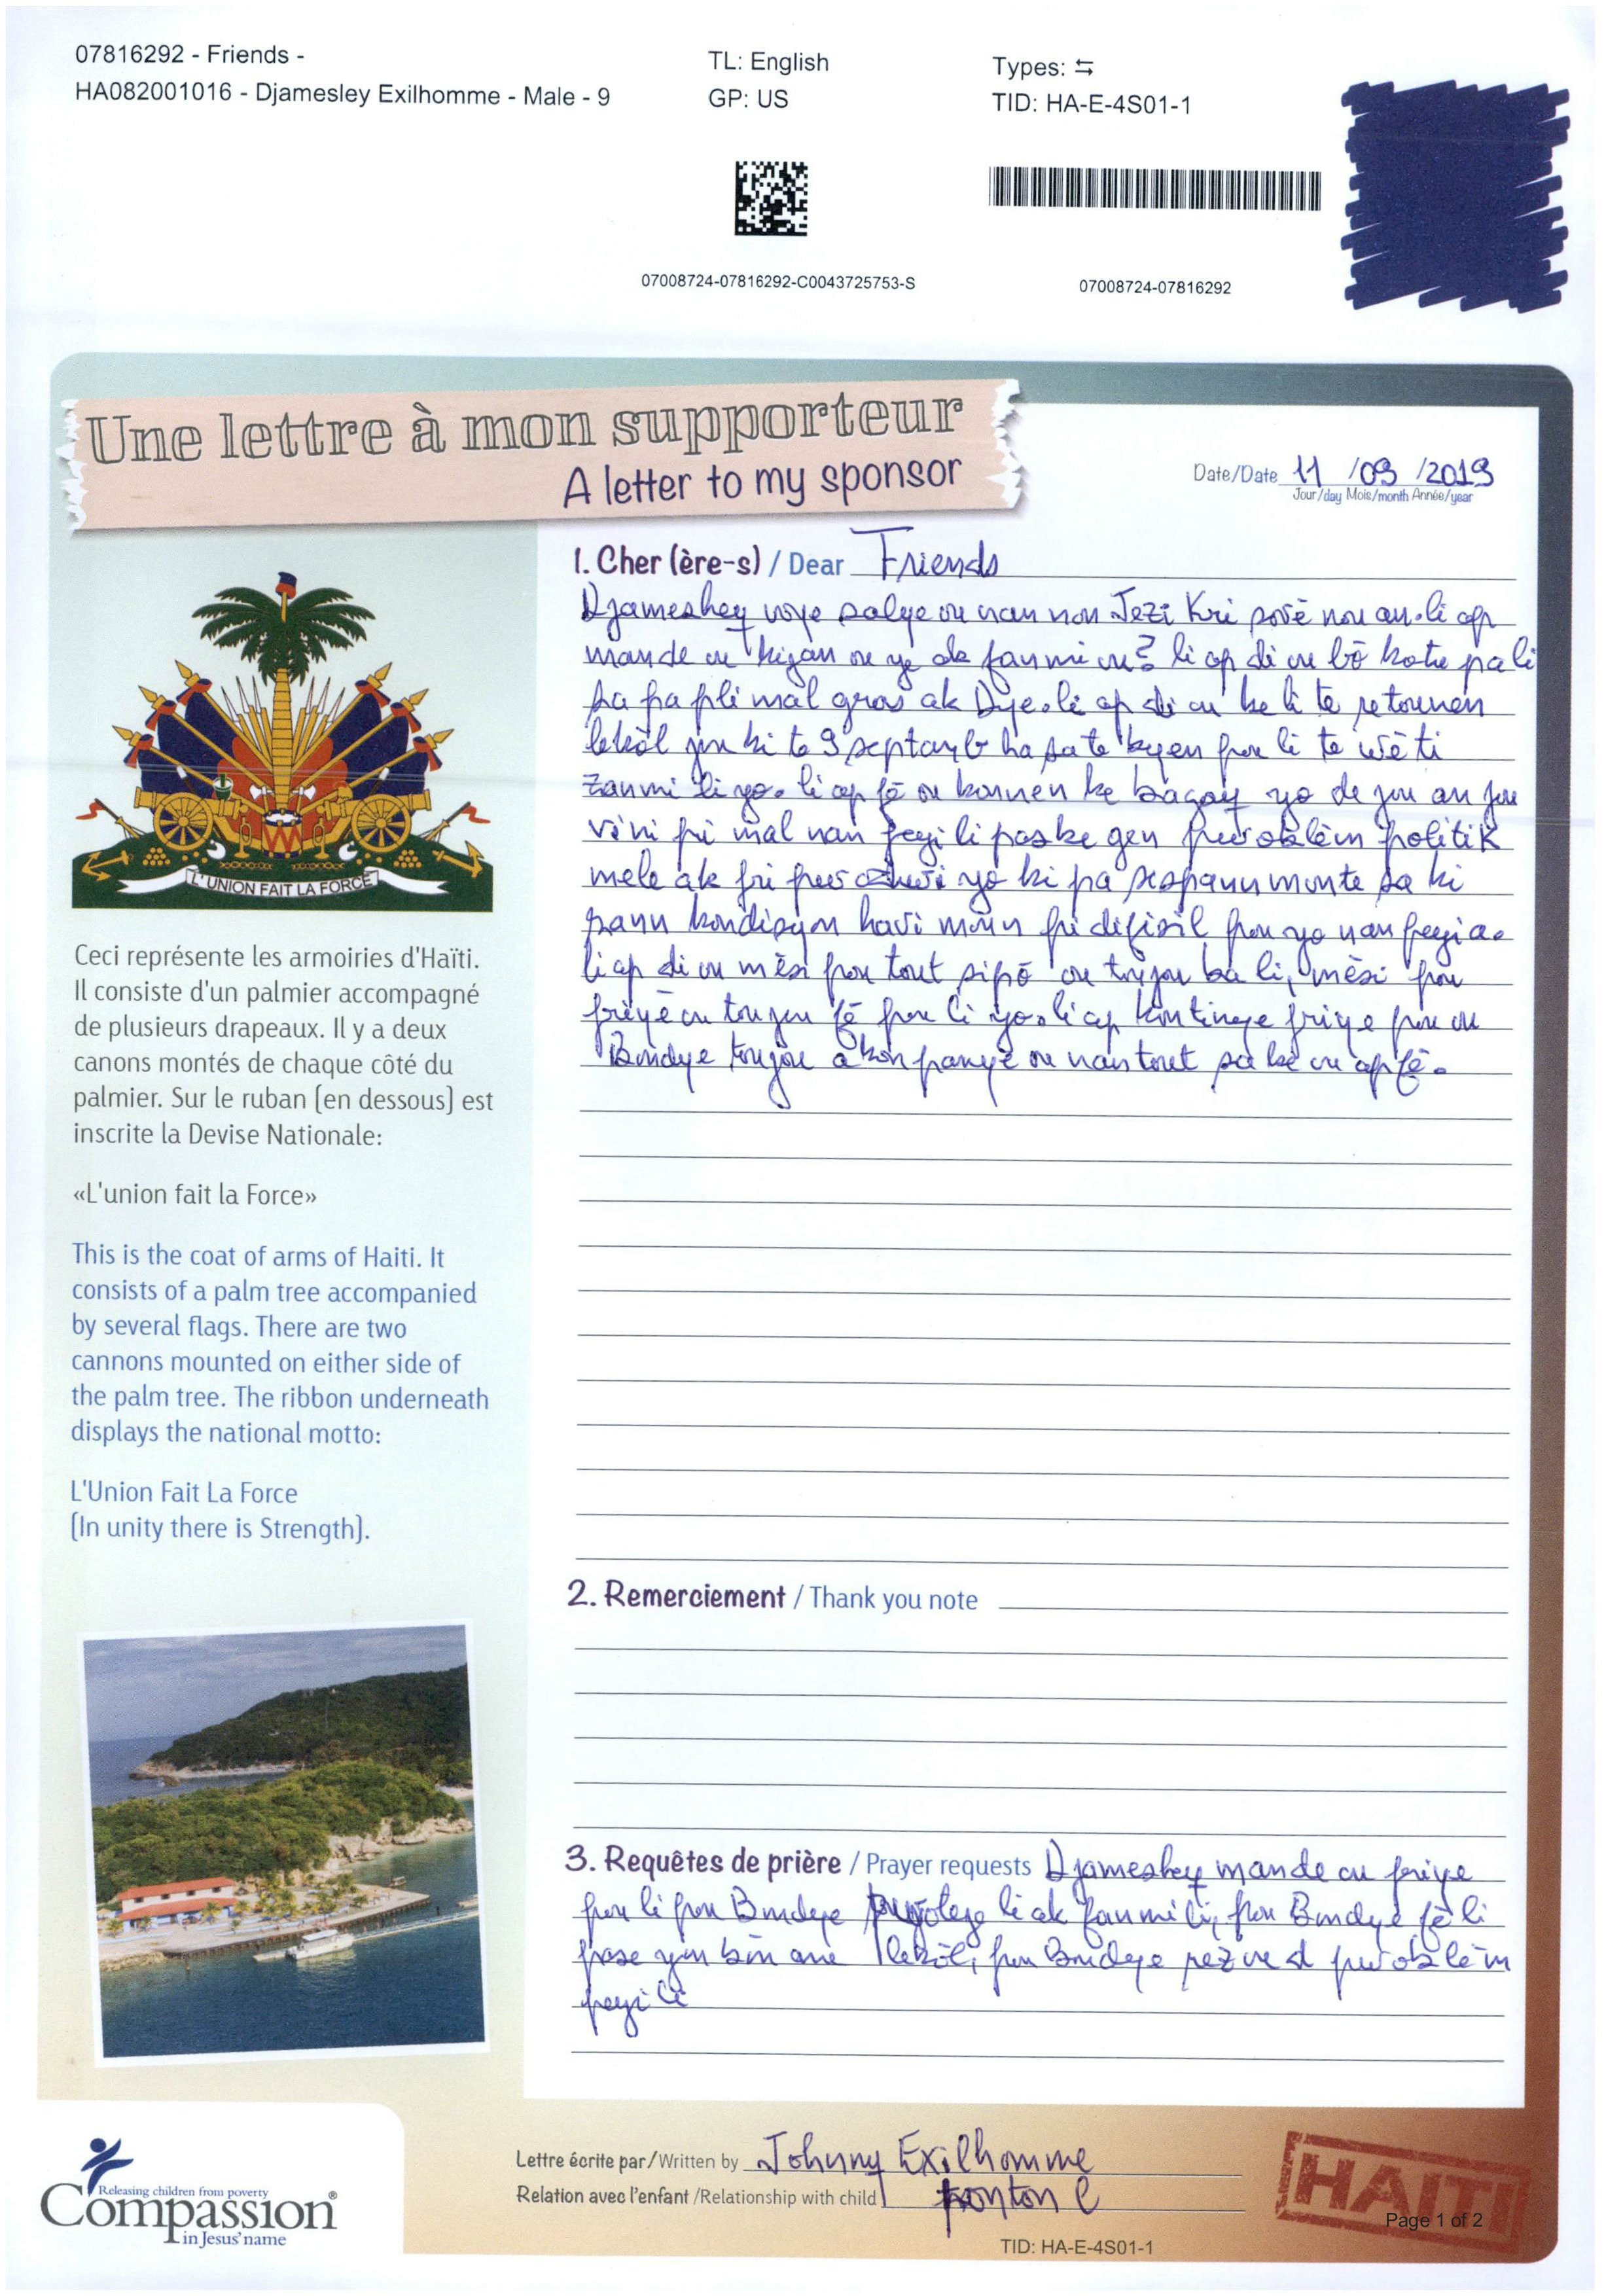 07816292 - Friends -
HA082001016 - Djamesley Exilhomme - Male - 9
TL: English
GP: US
Types: ⇆
TID: HA-E-4S01-1
07008724-07816292-C0043725753-S
07008724-07816292
Une lettre à mon supporteur
A letter to my sponsor
Date/Date 11 /09 /2019
Jour/day Mois/month Année/year
1. Cher (ère-s) / Dear Friends
Djamesley voye salye ou nan non Jezi Kri sovè nou an. li ap
mande ou kijan ou ye ak fanmi ou? li ap di ou bò kote pa li
sa pa pli mal gras ak Dye. li ap di ou ke li te retounen
lekòl jou ki te 9 septanb ha sa te byen pou li te wè ti
zanmi li yo. li ap fè ou konnen ke bagay yo de jou an jou
vini pi mal nan peyi li paske gen pwoblèm politik
mele ak pri pwodwi yo ki pa sispann monte sa ki
rann kondisyon lavi moun pi difisil pou yo nan peyi a.
li ap di ou mèsi pou tout sipò ou toujou ba li, mèsi pou
priyè ou toujou fè pou li yo. li ap kontinye priye pou ou
Bondye toujou akonpanye ou nan tout sa ke ou ap fè.
L'UNION FAIT LA FORCE
Ceci représente les armoiries d'Haïti.
Il consiste d'un palmier accompagné
de plusieurs drapeaux. Il y a deux
canons montés de chaque côté du
palmier. Sur le ruban (en dessous) est
inscrite la Devise Nationale:
«L'union fait la Force»
This is the coat of arms of Haiti. It
consists of a palm tree accompanied
by several flags. There are two
cannons mounted on either side of
the palm tree. The ribbon underneath
displays the national motto:
L'Union Fait La Force
(In unity there is Strength).
2. Remerciement / Thank you note
3. Requêtes de prière / Prayer requests Djamesley mande ou priye
pou li pou Bondye pwoteje li ak fanmi li, pou Bondye fè li
pase yon bon ane lekòl, pou Bondye pwoblèm
peyi li
Lettre écrite par/Written by Johnny Exilhomme
Relation avec l'enfant /Relationship with child tonton
Releasing children from poverty
Compassion®
in Jesus' name
HAITI
Page 1 of 2
TID: HA-E-4S01-1